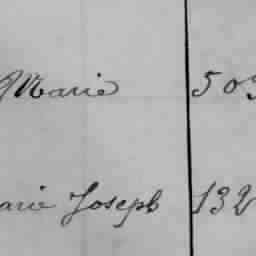 Marie 503
arie Joseph 132